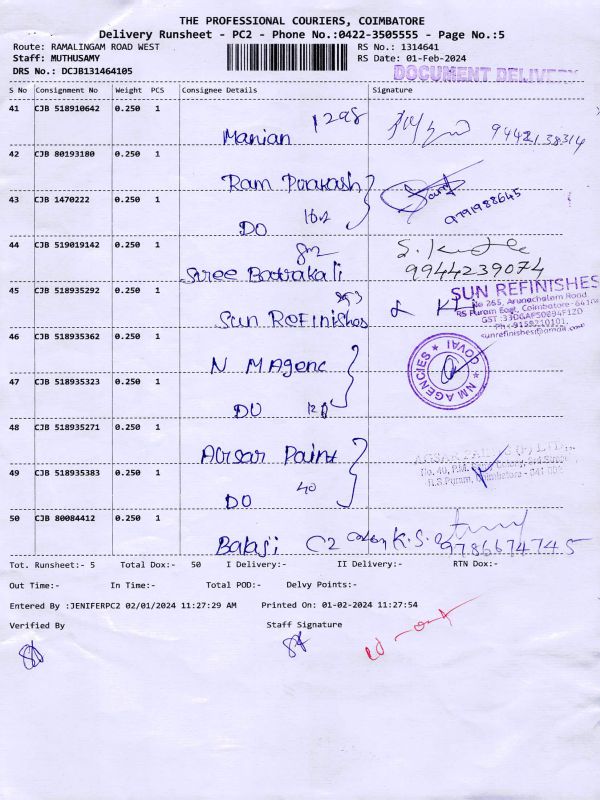 THE PROFESSIONAL COURIERS, COIMBATORE
Delivery Runsheet - PC2 - Phone No.:0422-3505555 - Page No.:5
Route: RAMALINGAM ROAD WEST RS No.: 1314641
Staff: MUTHUSAMY RS Date: 01-Feb-2024
DRS No.: DCJB131464105 DOCUMENT DELIVERY
S No Consignment No Weight PCS Consignee Details Signature
41 CJB 518910642 0.250 1
Manian 1298 9442138314
42 CJB 80193180 0.250 1
Ram Prakash
43 CJB 1470222 0.250 1
DO 9791988645
44 CJB 519019142 0.250 1
Sree Badrakali 9944239074
45 CJB 518935292 0.250 1
Sun Refinishes
SUN REFINISHES
No 265, Arunachalam Road
RS Puram East, Coimbatore
GST :33DGAPS0894F1ZD
Ph : 9159210101
sunrefinishes@gmail.com
46 CJB 518935362 0.250 1
N M Agenc
NM AGENCIES KOVAI
47 CJB 518935323 0.250 1
DO
48 CJB 518935271 0.250 1
Agsar Paint
49 CJB 518935383 0.250 1
DO 40
AGSAR PAINTS (P) LTD.
R.S Puram, Coimbatore - 641 002
50 CJB 80084412 0.250 1
Balaji 9786674745
Tot. Runsheet:- 5 Total Dox:- 50 I Delivery:- II Delivery:- RTN Dox:-
Out Time:- In Time:- Total POD:- Delvy Points:-
Entered By :JENIFERPC2 02/01/2024 11:27:29 AM Printed On: 01-02-2024 11:27:54
Verified By Staff Signature